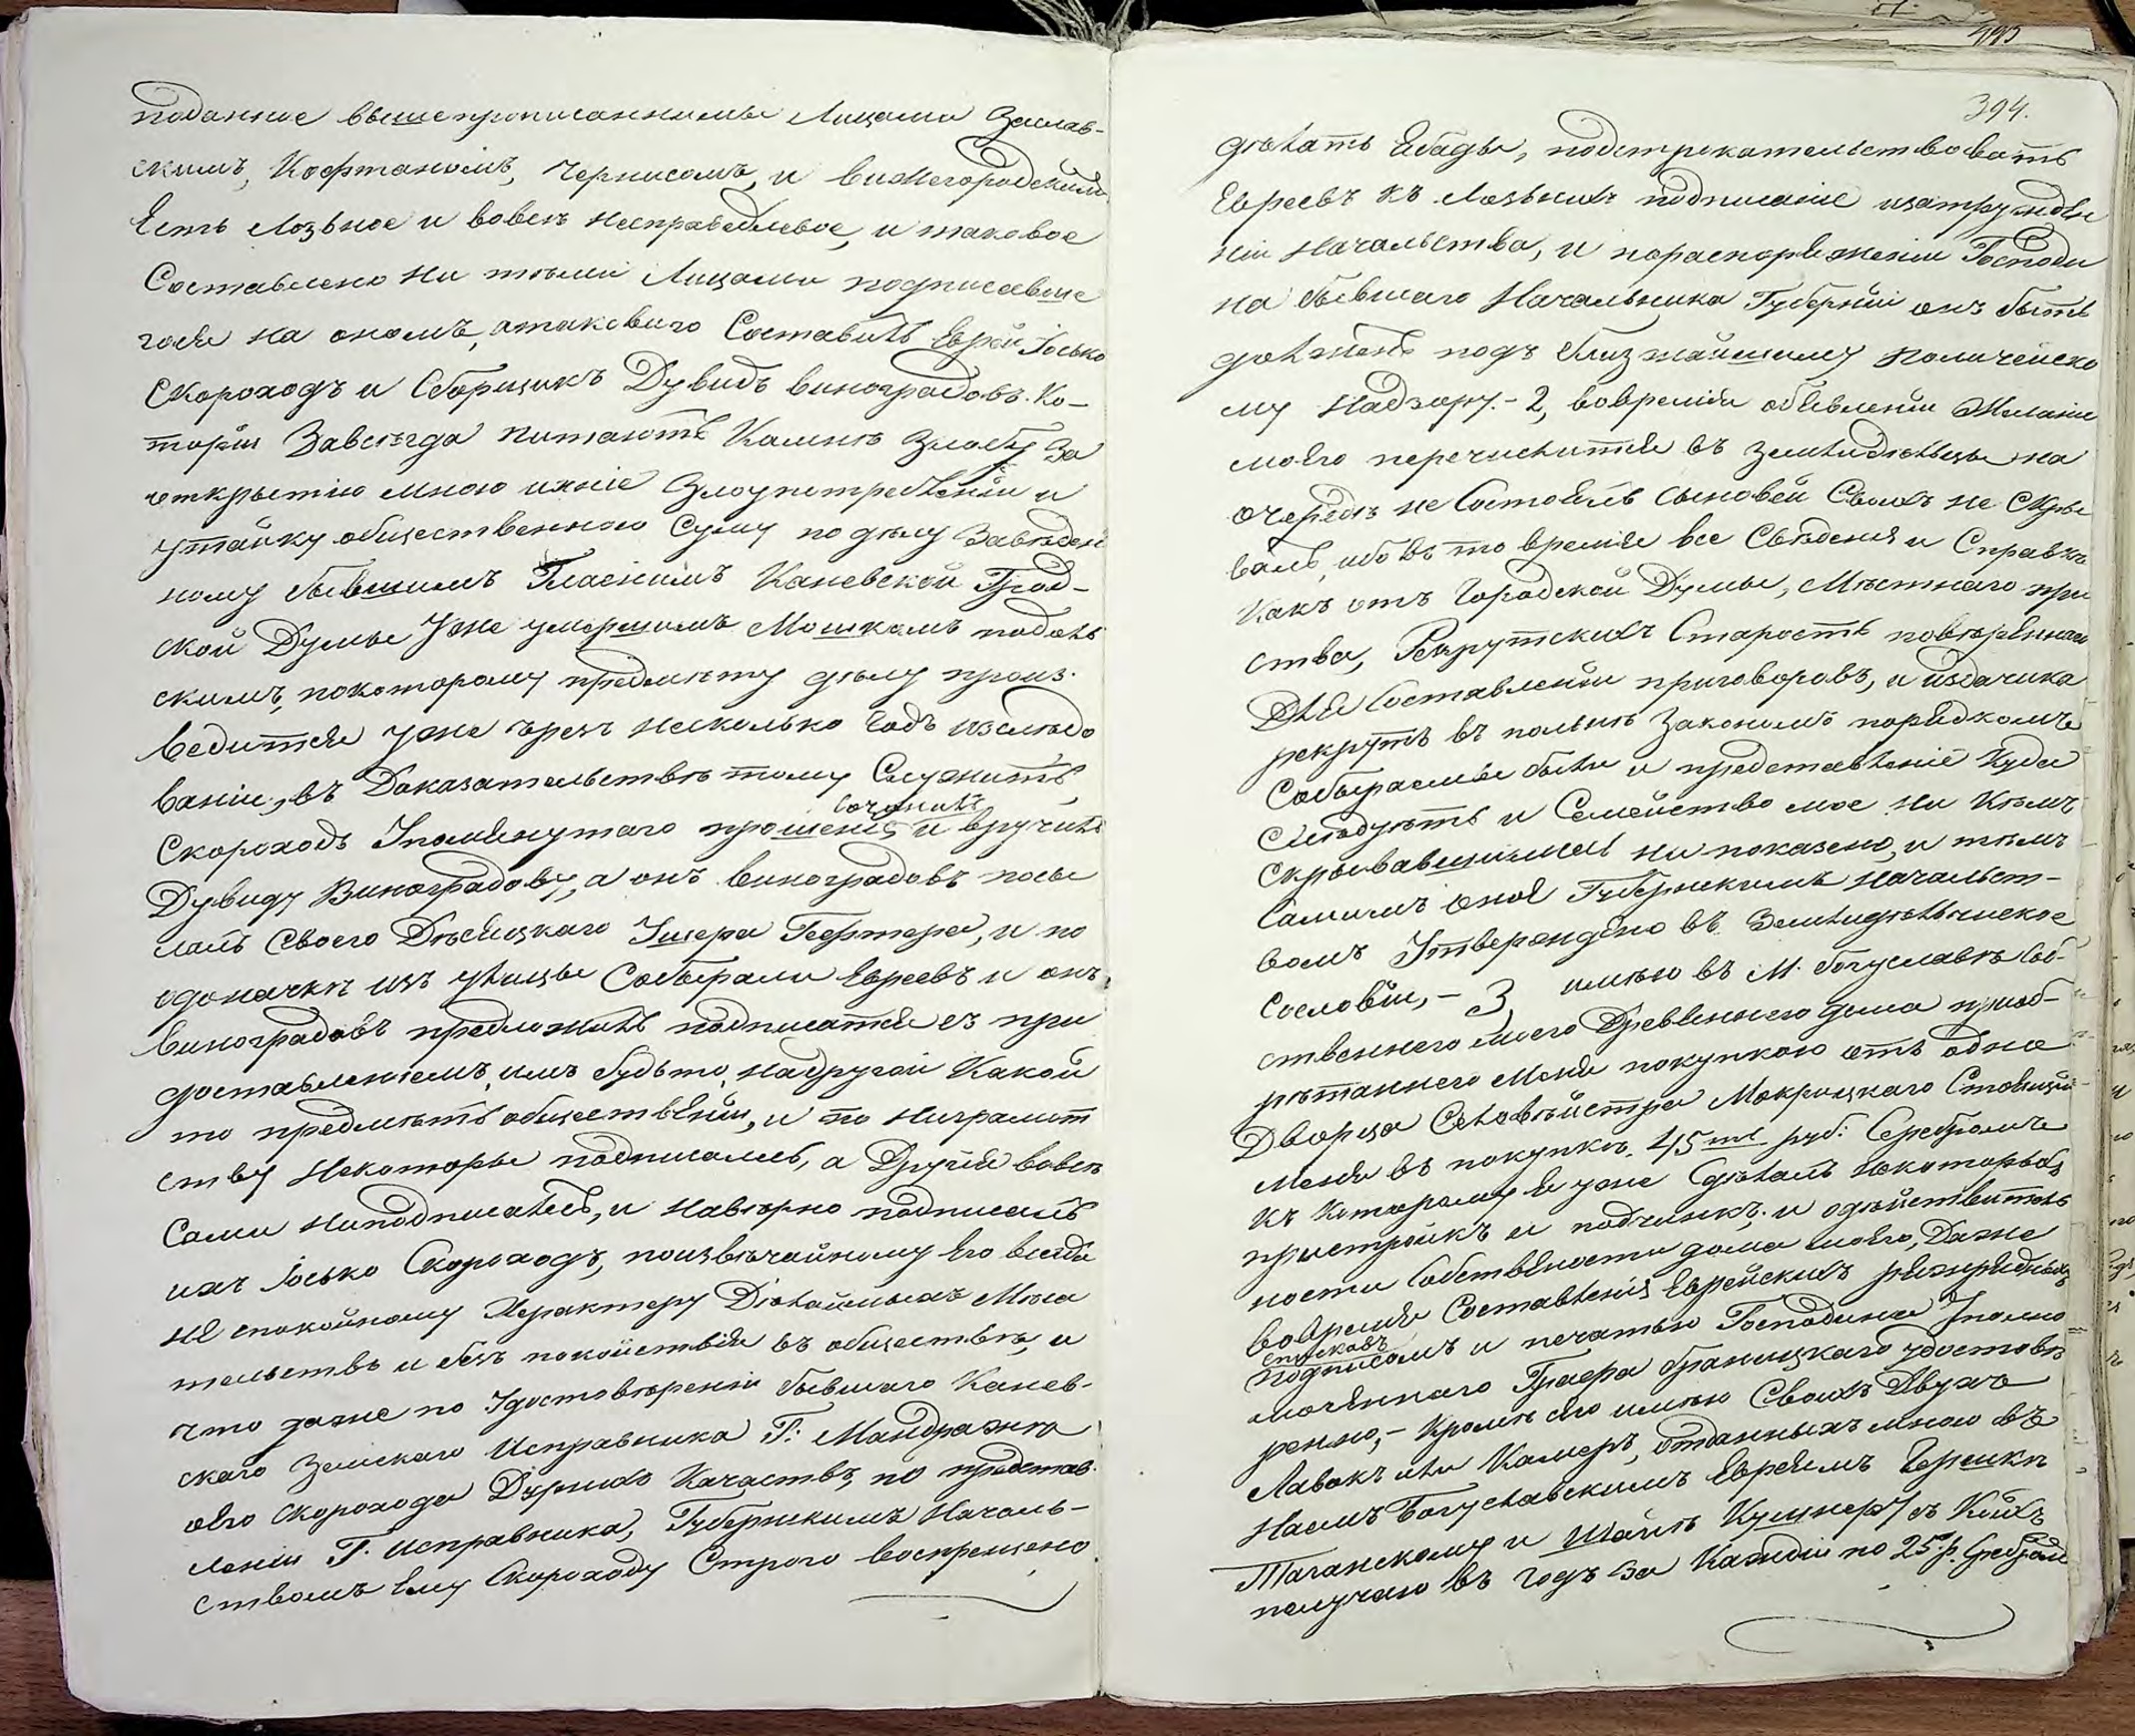 поданное вышепрописанными Лицами Заслав-
скимъ, Кофтаномъ, Чернисомъ, и вижегородскимъ
Есть Лозьное и вовсѣ несправедлевое, и таковое
Составлено ни тѣми Лицами подписавше
гося на ономъ, атаковаго Составилъ Еврей Іосько
Скороходъ и Сборщикъ Дувидъ виноградовъ. Ко-
торіи Завсѣгда питаютъ Комнѣ Злобу За
открытію мною ихніе Злоупотребленіи и
утайку общественною Суму по дѣлу Завѣден
ному бывшимъ Гласнимъ Каневской Град-
ской Думы Уже умершимъ Мошкомъ подоль
скимъ, покоторому предмѣту дѣлу произ-
водится уже чрезъ несколько Годъ изслѣдо
ваніи, въ Доказательствѣ тому Служитъ,
сочинилъ
Скороходъ Упомянутаго прошенія и вручилъ
Дувиду Виноградову, а онъ виноградовъ посы
лалъ Своего Дѣсяцкаго Ушера Гефтера, и по
одоначки изъ улицы Собырали Евреевъ и онъ
виноградовъ предложилъ подписатся съ при
доставленіемъ имъ будьто, надругой Какой
то предмѣтъ общественіи, и по Играмот
ству Некоторы подписались, а Другія вовсѣ
Сами Ниподписались, и навѣрно подписалъ
ихъ Іосько Скороходъ, поизвѣчайному Его всегда
не спокойному Характеру Дѣлаймыхъ Мѣка
тельствъ и безъ покойствія въ обществѣ, и
что даже по Удостовѣреніи бывшаго Канев-
скаго Земскаго Исправника Г: Мандражѣ
оего Скорохода Дурнихъ Качествъ, по представ-
леніи Г. Исправника, Губернскимъ Началь-
ствомъ Ему Скороходу Строго воспрещено
394.
дѣлать Ябады, подстрекательствовать
Евреевъ къ Лозьнихъ подписаніе изатруждѣ
ніи Начальства, и пораспоряженіи Господи
на бывшаго Начальника Губерніи онъ бытъ
долженъ подъ ближайшиму Поличейско
му Надзору.- 2, вовремія объявленіи Желаніи
моего перечислится въ Земледѣлцы на
очередѣ не Состоялъ сыновей Своихъ не Скры
валъ, ибо въ то времія все Свѣденія и Справки
Какъ отъ Городской Думы, Мѣстнаго при
ства, Рекрутскихъ Старостъ повѣреннаго
Для Составленіи приговоровъ, и издачика
рекрутъ въ полниѣ Закономъ порядкомъ
Собыраемы были и представленіе Куда
Слѣдуетъ и Семейство мое ни Кѣмъ
Скрывавшимись ни показено, и тѣмъ
Самимъ оное Губернскимъ Началест-
вомъ Утверждено въ Земледѣльческое
Сословіи,- 3, имѣю въ М. Богуславѣ Соб-
ственнего моего Древенного дома приоб-
рѣтаннего Меня покупкою отъ одно
Дворца Селевѣйстра Мокрицкаго Стоющій
Меня въ покупкѣ 45 ть руб: Серебромъ
къ Которому я уже Сдѣлалъ некоторыхъ
пристройкъ и подчинкъ, и одѣйствитель
ности Собствености дома моего, Даже
вовремя Составленія Еврейскихъ разрядныхъ
списковъ
подписомъ и печатью Господина Уполно
моченнаго Графа браницкаго удостовѣ
ренно,- Кромѣ сего имѣю Своихъ Двухъ
Лавокъ или Камеръ, отданныхъ мною въ
Наемъ Богуславскимъ Евреямъ Гершки
Таганскому и Шаи Кушнеру съ Коихъ
получаю въ Годъ За Каждіи по 25 р. Сребром